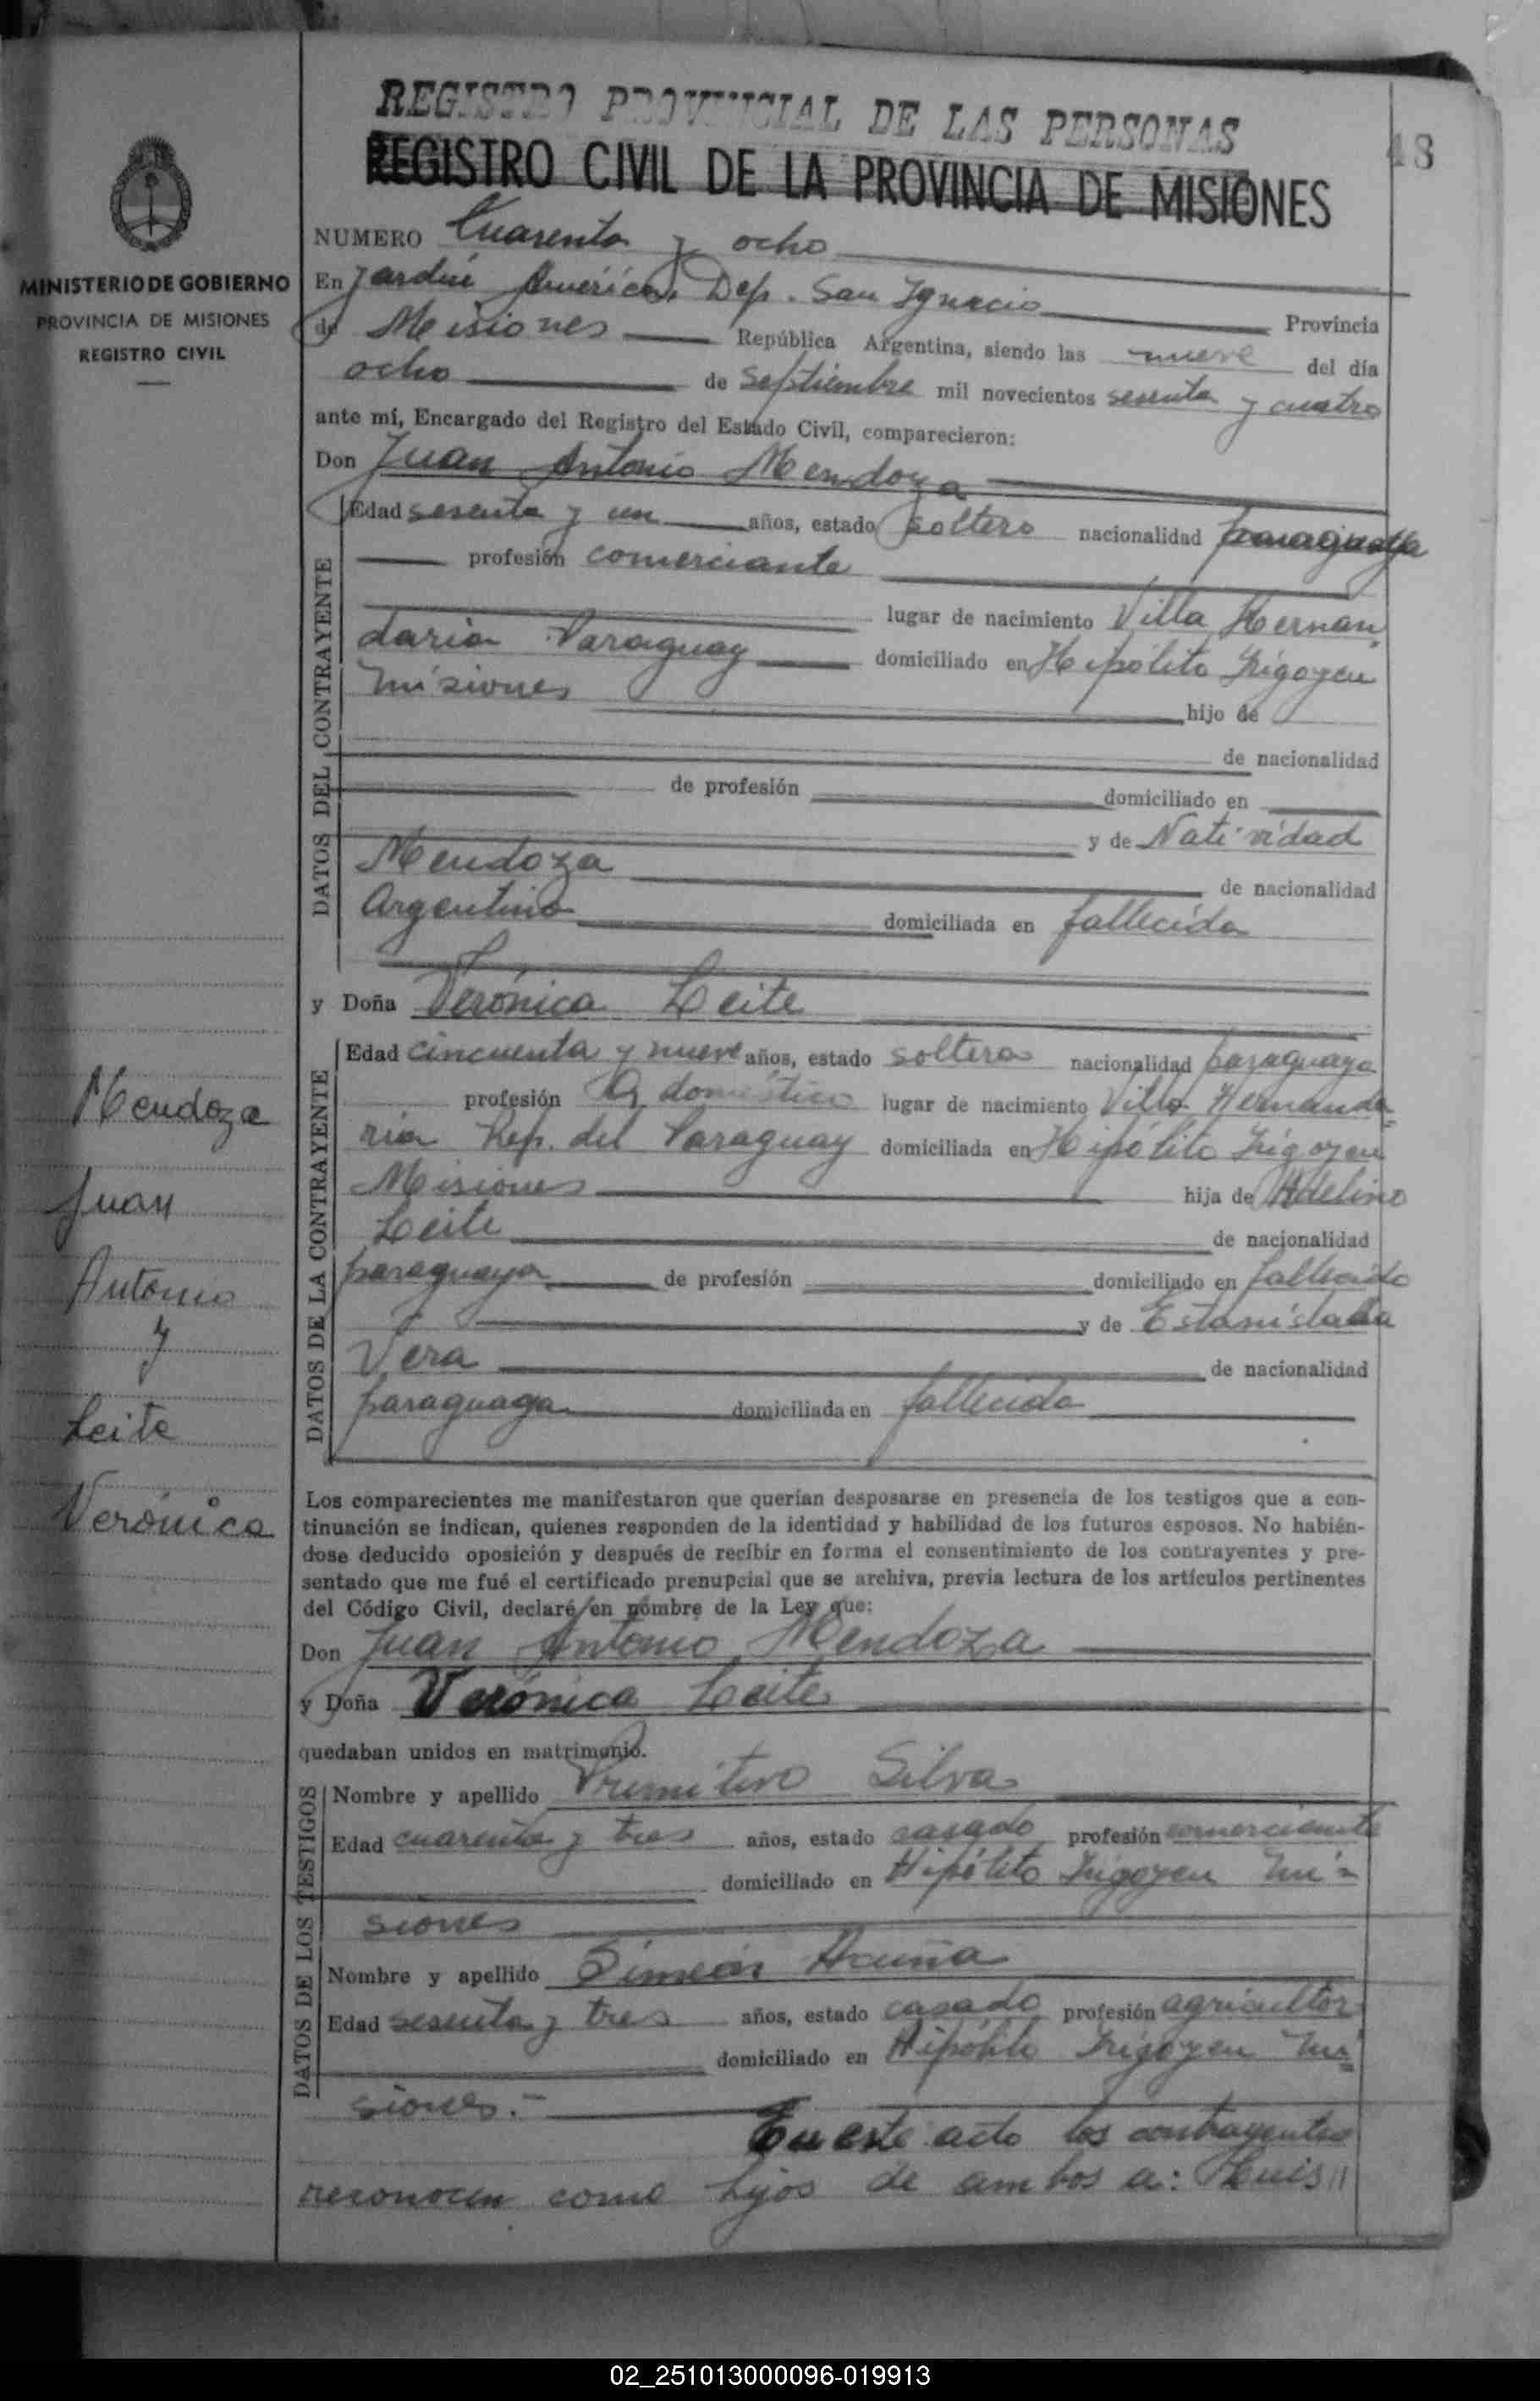 REGISTRO PROVINCIAL DE LAS PERSONAS
REGISTRO CIVIL DE LA PROVINCIA DE MISIONES
48
MINISTERIO DE GOBIERNO
PROVINCIA DE MISIONES
REGISTRO CIVIL
NUMERO Cuarenta y ocho
En Jardin América, Dep. San Ignacio Provincia
de Misiones República Argentina, siendo las nueve del día
ocho de septiembre mil novecientos sesenta y cuatro
ante mí, Encargado del Registro del Estado Civil, comparecieron:
Don Juan Antonio Mendoza
DATOS DEL CONTRAYENTE
Edad sesenta y un años, estado soltero nacionalidad paraguaya
profesión comerciante
lugar de nacimiento Villa Hernan
daria Paraguay domiciliado en Hipólito Irigoyen
Misiones hijo de
de nacionalidad
de profesión domiciliado en
y de Natividad
Mendoza de nacionalidad
Argentina domiciliada en fallecida
y Doña Verónica Leite
DATOS DE LA CONTRAYENTE
Edad cincuenta y nueve años, estado soltera nacionalidad paraguaya
profesión Q. doméstico lugar de nacimiento Villa Hernanda-
ria Rep. del Paraguay domiciliada en Hipólito Irigoyen
Misiones hija de Adelino
Leite de nacionalidad
paraguaya de profesión domiciliado en fallecido
y de Estanislada
Vera de nacionalidad
paraguaya domiciliada en fallecida
Mendoza
Juan
Antonio
y
Leite
Verónica
Los comparecientes me manifestaron que querían desposarse en presencia de los testigos que a con-
tinuación se indican, quienes responden de la identidad y habilidad de los futuros esposos. No habién-
dose deducido oposición y después de recibir en forma el consentimiento de los contrayentes y pre-
sentado que me fué el certificado prenupcial que se archiva, previa lectura de los artículos pertinentes
del Código Civil, declaré en nombre de la Ley que:
Don Juan Antonio Mendoza
y Doña Verónica Leite
quedaban unidos en matrimonio.
DATOS DE LOS TESTIGOS
Nombre y apellido Primitivo Silva
Edad cuarenta y tres años, estado casado profesión comerciante
domiciliado en Hipólito Irigoyen Mi-
siones
Nombre y apellido Simeón Acuña
Edad sesenta y tres años, estado casado profesión agricultor
domiciliado en Hipólito Irigoyen Mi-
siones.-
En este acto los contrayentes
reconocen como hijos de ambos a: Luis //
02_251013000096-019913